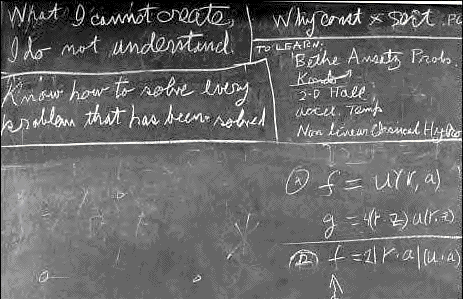 What I cannot create,
I do not understand.
Know how to solve every
problem that has been solved
Why const × sort . Po
TO LEARN:
Bethe Ansatz Probs.
Kondo
2-D Hall
accel. Temp
Non linear Classical Hydro
Ⓐ f = U(r, a)
g = 4(r·z) u(r, z)
Ⓑ f = 2|r·a|(u·a)